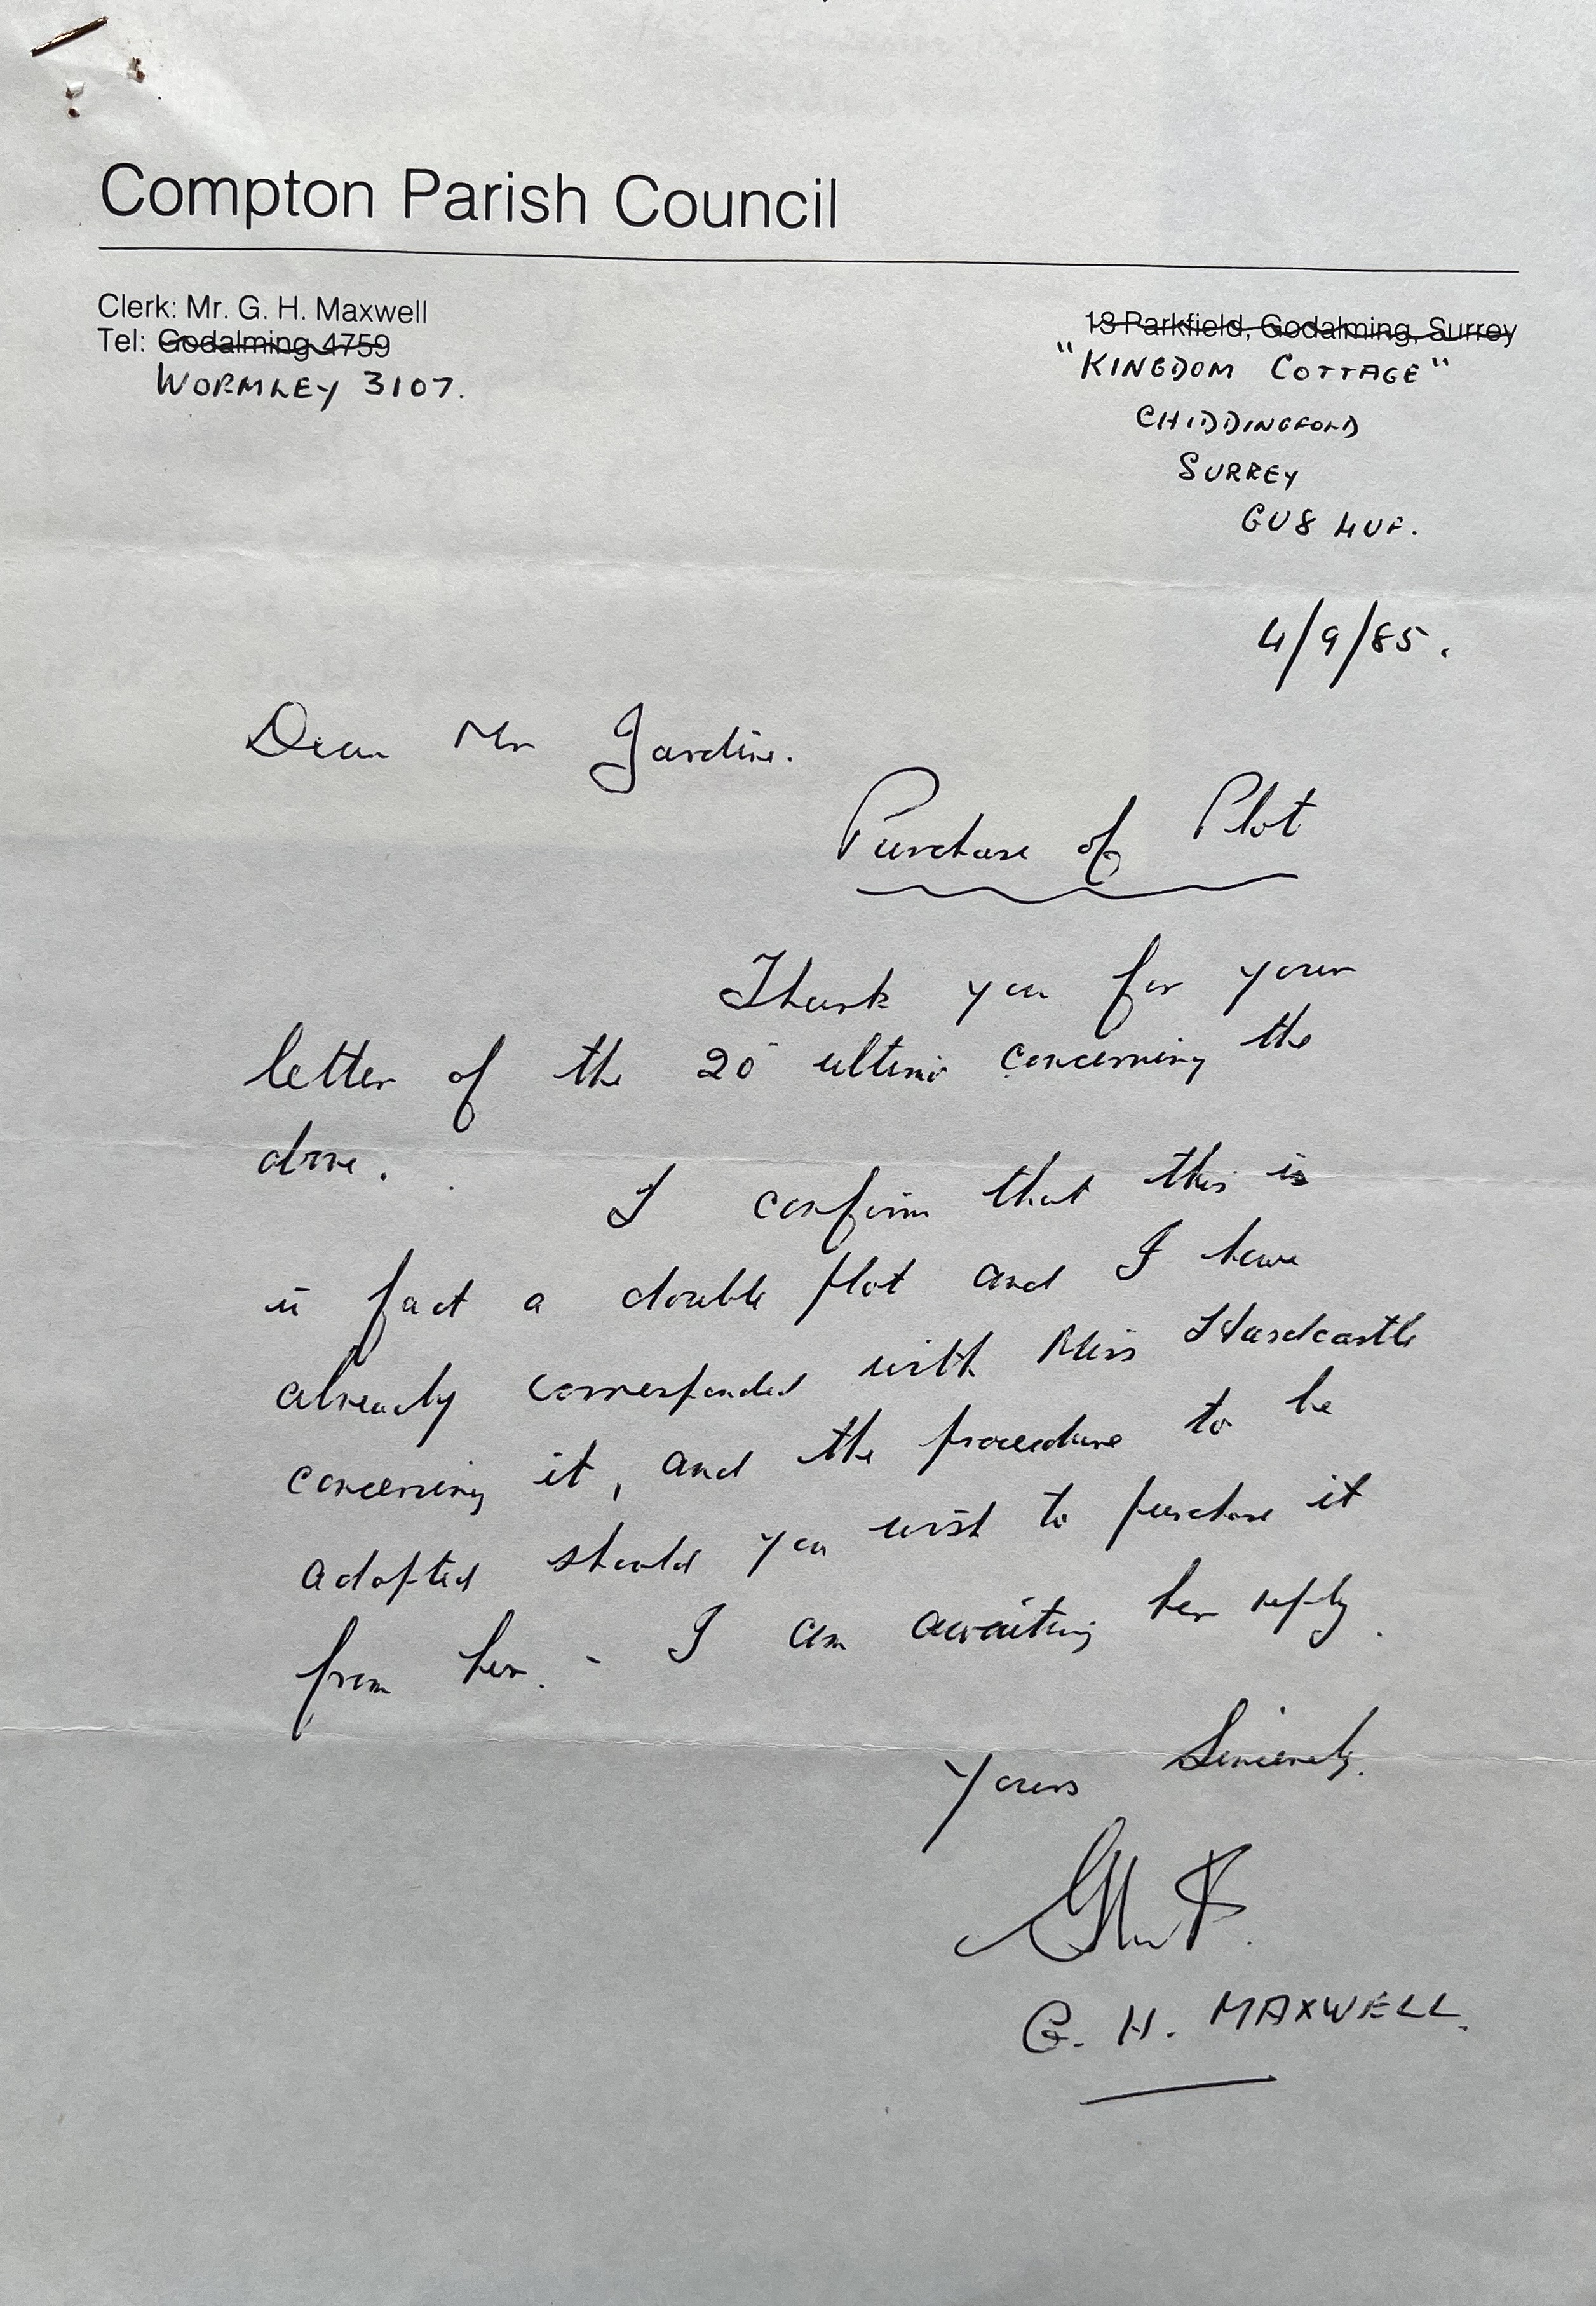 Compton Parish Council
Clerk: Mr. G. H. Maxwell
Tel: Godalming 4759
WORMLEY 3107.
13 Parkfield, Godalming, Surrey
"KINGDOM COTTAGE"
CHIDDINGFOLD
SURREY
GU8 4UF.
4/9/85.
Dear Mr Jardine.
Purchase of Plot
Thank you for your
letter of the 20 ultimo concerning the
above.
I confirm that this is
in fact a double plot and I have
already corresponded with Miss Hardcastle
concerning it, and the procedure to be
adopted should you wish to purchase it
from her. - I am awaiting her reply.
Yours Sincerely.
G. H. MAXWELL.